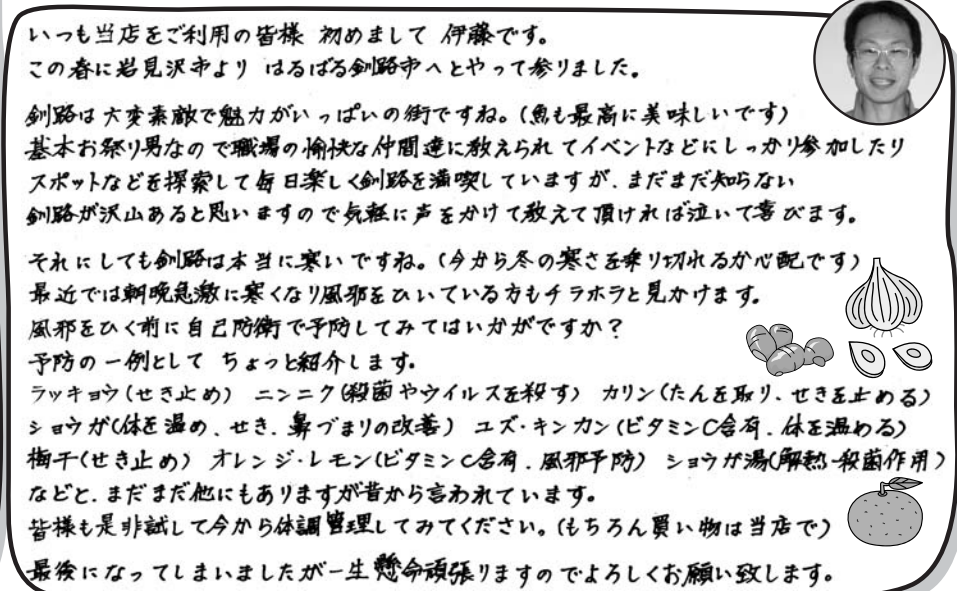 いつも当店をご利用の皆様 初めまして 伊藤です。
この春に岩見沢市より はるばる釧路市へとやって参りました。
釧路は大変素敵で魅力がいっぱいの街ですね。(魚も最高に美味しいです)
基本お祭り男なので職場の愉快な仲間達に教えられてイベントなどにしっかり参加したり
スポットなどを探索して毎日楽しく釧路を満喫していますが、まだまだ知らない
釧路が沢山あると思いますので気軽に声をかけて教えて頂ければ泣いて喜びます。
それにしても釧路は本当に寒いですね。(今から冬の寒さを乗り切れるか心配です)
最近では朝晩急激に寒くなり風邪をひいている方もチラホラと見かけます。
風邪をひく前に自己防衛で予防してみてはいかがですか?
予防の一例として ちょっと紹介します。
ラッキョウ(せき止め) ニンニク(殺菌やウイルスを殺す) カリン(たんを取り、せきを止める)
ショウガ(体を温め、せき、鼻づまりの改善) ユズ・キンカン(ビタミンC含有、体を温める)
梅干(せき止め) オレンジ・レモン(ビタミンC含有、風邪予防) ショウガ湯(解熱・殺菌作用)
などと、まだまだ他にもありますが昔から言われています。
皆様も是非試して今から体調管理してみてください。(もちろん買い物は当店で)
最後になってしまいましたが一生懸命頑張りますのでよろしくお願い致します。